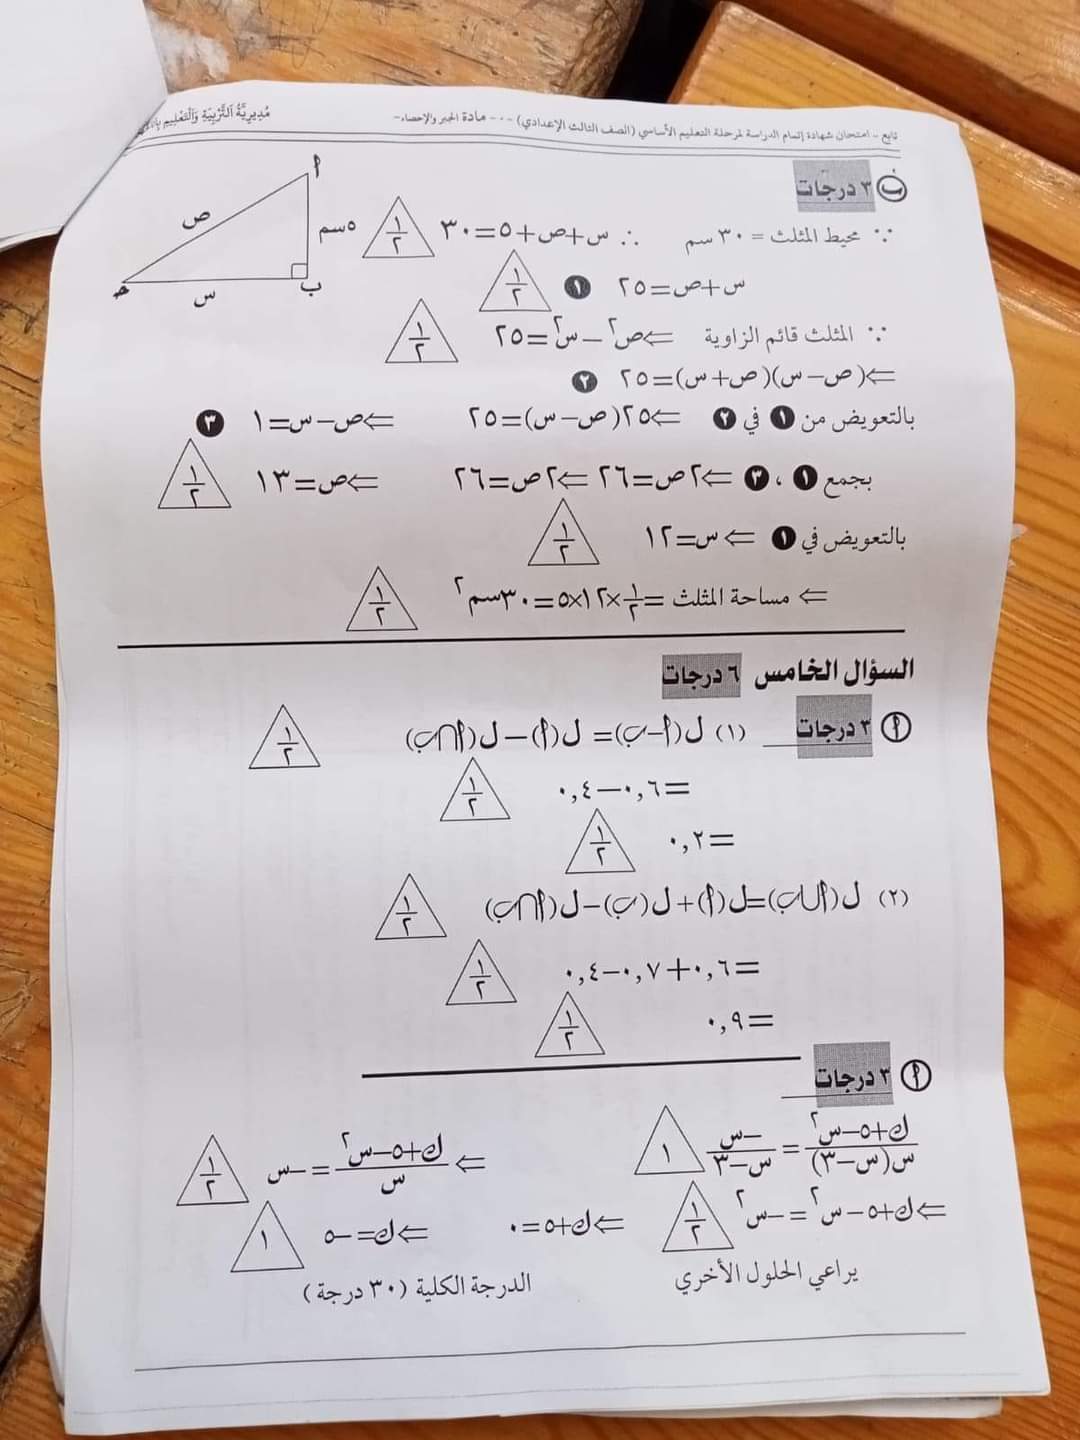 تابع - امتحان شهادة إتمام الدراسة لمرحلة التعليم الأساسي (الصف الثالث الإعدادي) - ٠ - مادة الجبر والإحصاء - مُدِيرِيَّةُ اَلتَّرْبِيَةِ وَالْتَعْلِيمِ
ب ٣ درجات
م
ص
٥سم
س
ب
حـ
∵ محيط المثلث = ٣٠ سم ∴ س+ص+٥=٣٠ ١/٢
س+ص=٢٥ ١ ١/٢
∵ المثلث قائم الزاوية ⇐ص٢–س٢=٢٥ ١/٢
⇐(ص–س)(ص+س)=٢٥ ٢
بالتعويض من ١ في ٢ ⇐٢٥(ص–س)=٢٥ ⇐ص–س=١ ٣
بجمع ١ ، ٣ ⇐٢ص=٢٦ ⇐٢ص=٢٦ ⇐ص=١٣ ١/٢
بالتعويض في ١ ⇐ س=١٢ ١/٢
⇐ مساحة المثلث =١/٢×١٢×٥=٣٠سم٢ ١/٢
السؤال الخامس ٦ درجات
م ٣ درجات (١) ل(م–ب)= ل(م)–ل(م∩ب) ١/٢
=٠,٦–٠,٤ ١/٢
=٠,٢ ١/٢
(٢) ل(م∪ب)=ل(م)+ل(ب)–ل(م∩ب) ١/٢
=٠,٦+٠,٧–٠,٤ ١/٢
=٠,٩ ١/٢
م ٣ درجات
ك+٥–س٢/س(س–٣) = –س/س–٣ ١ ⇐ ك+٥–س٢/س = –س ١/٢
⇐ك+٥–س٢=–س٢ ١/٢ ⇐ك+٥=٠ ⇐ك=–٥ ١
يراعي الحلول الأخري الدرجة الكلية (٣٠ درجة )